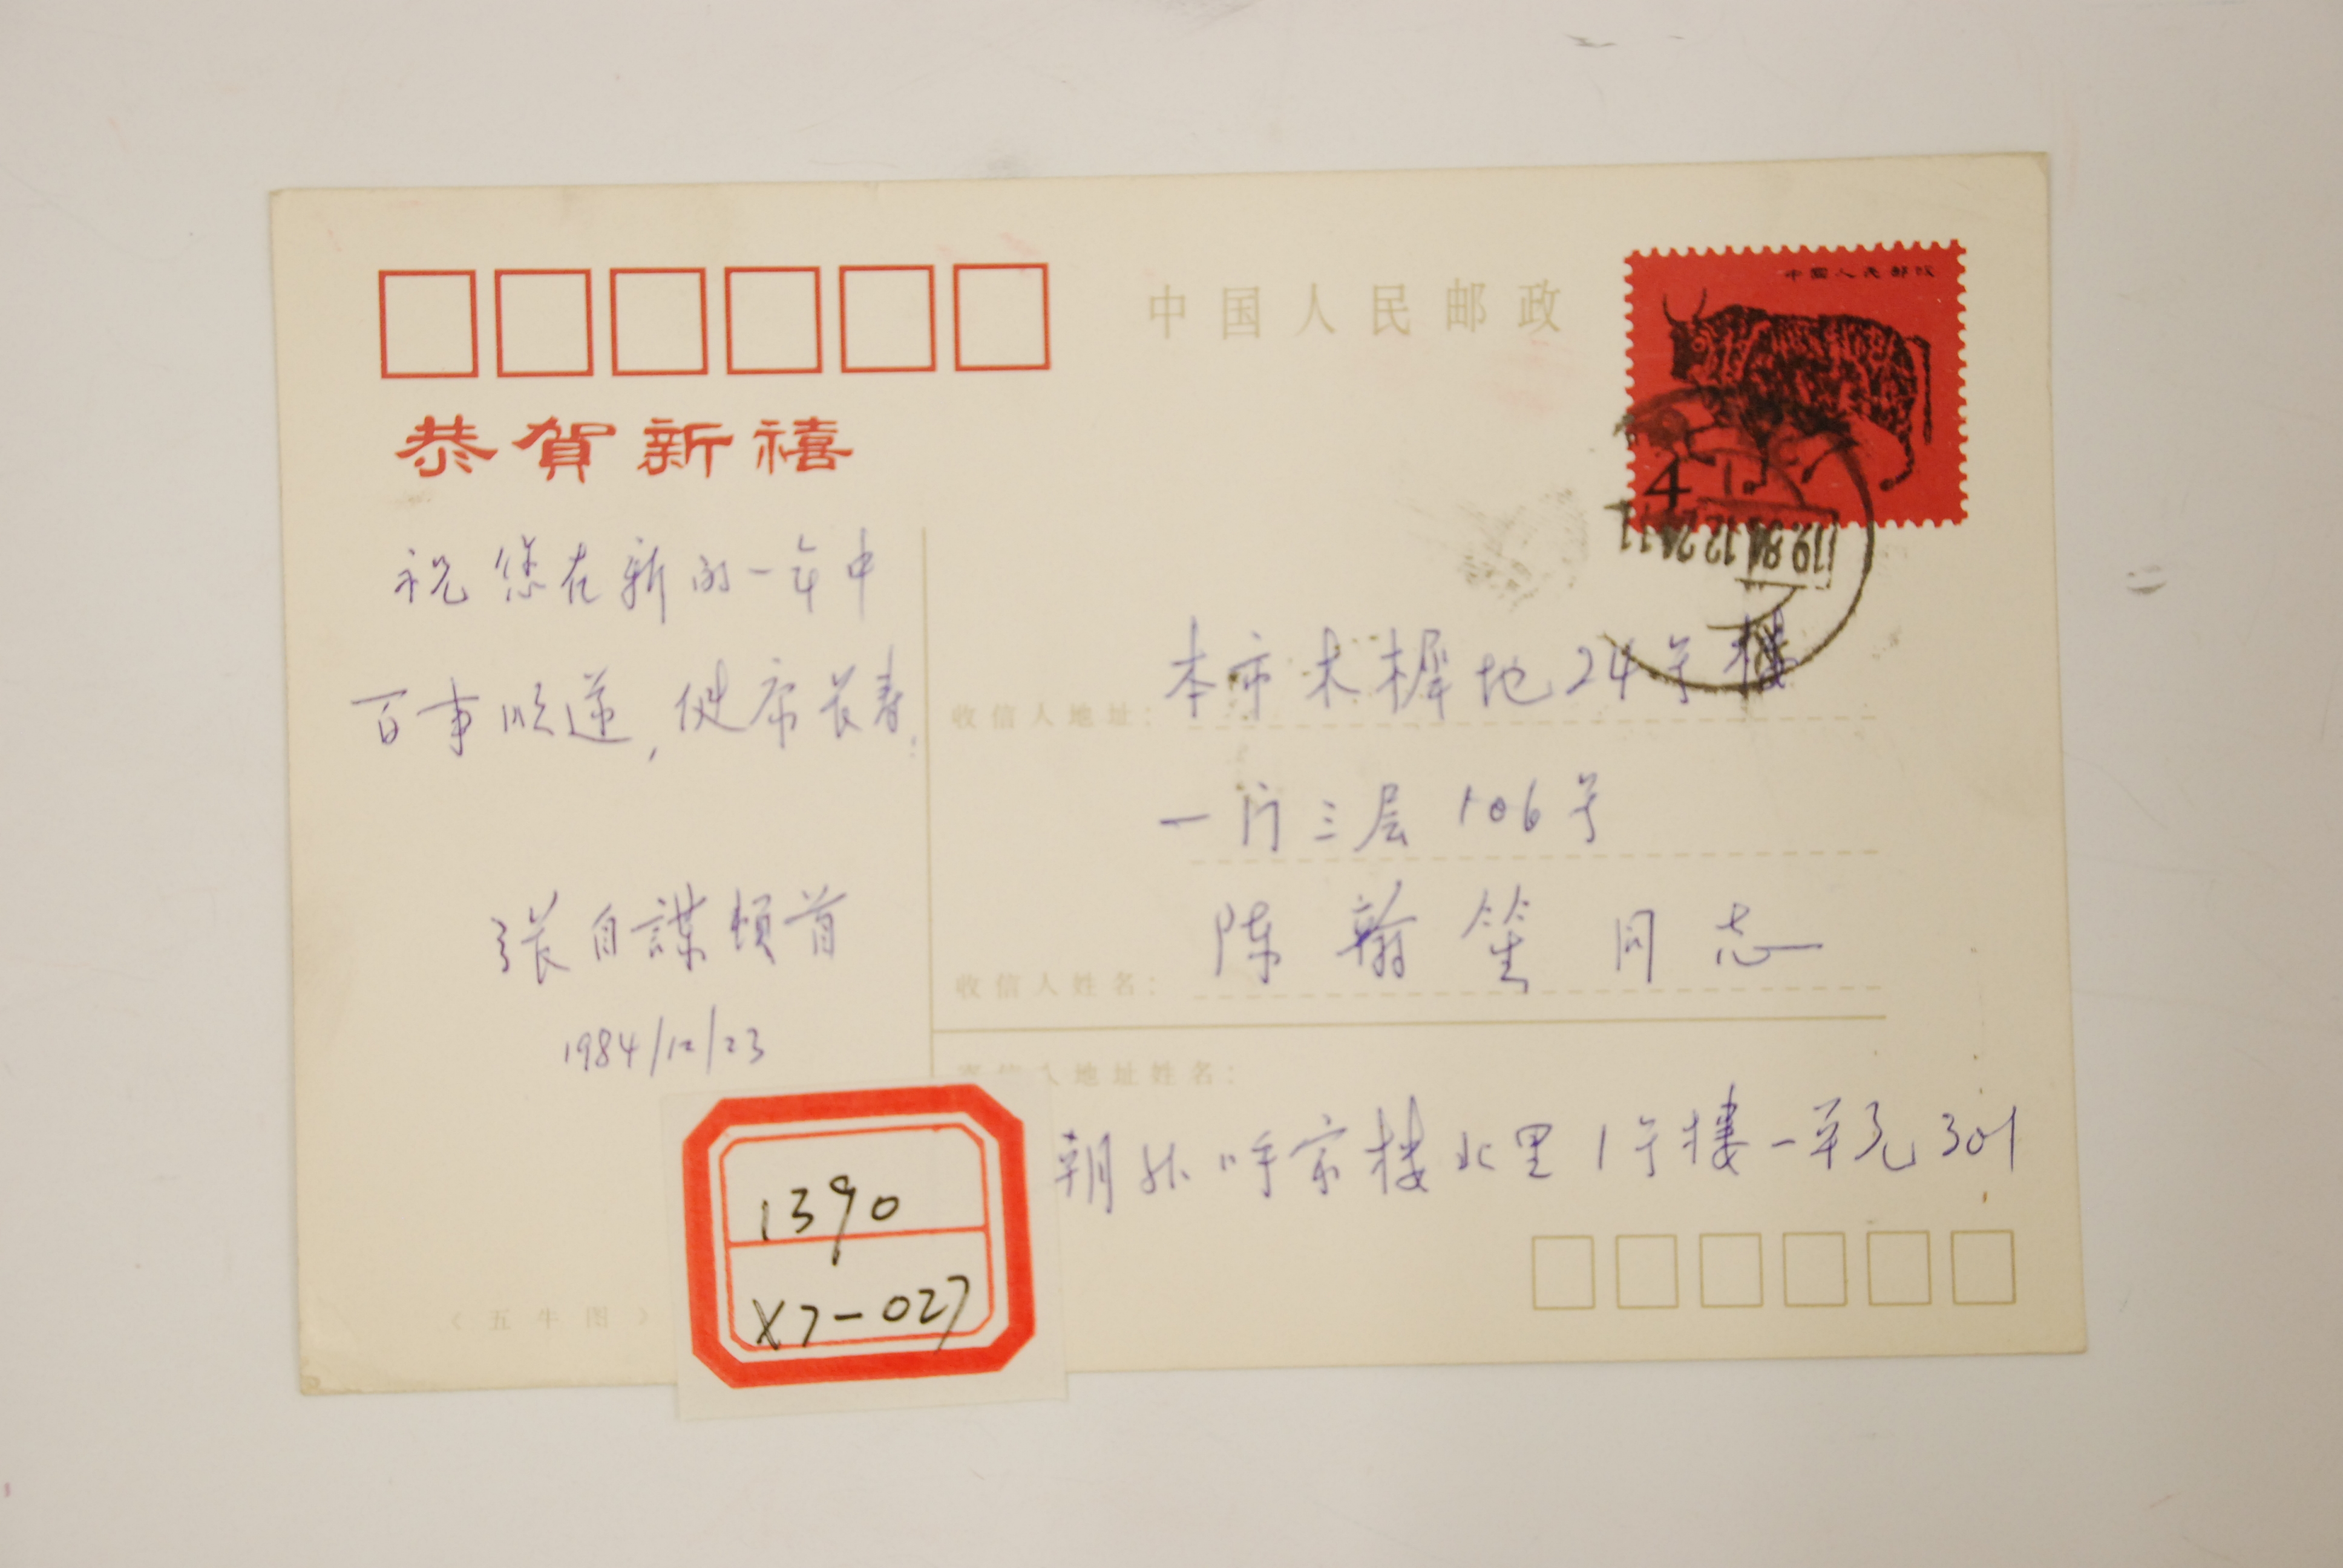 中国人民邮政
中国人民邮政
4
1984.12.24.11
恭賀新禧
祝您在新的一年中
百事顺遂,健康长寿.
張自謀頓首
1984/12/23
收信人地址:
本市木樨地24号楼
一门三层106号
收信人姓名:
陈翰笙同志
寄信人地址姓名:
朝外呼家楼北里1号樓一单元301
《五牛图》
1390
X7-027